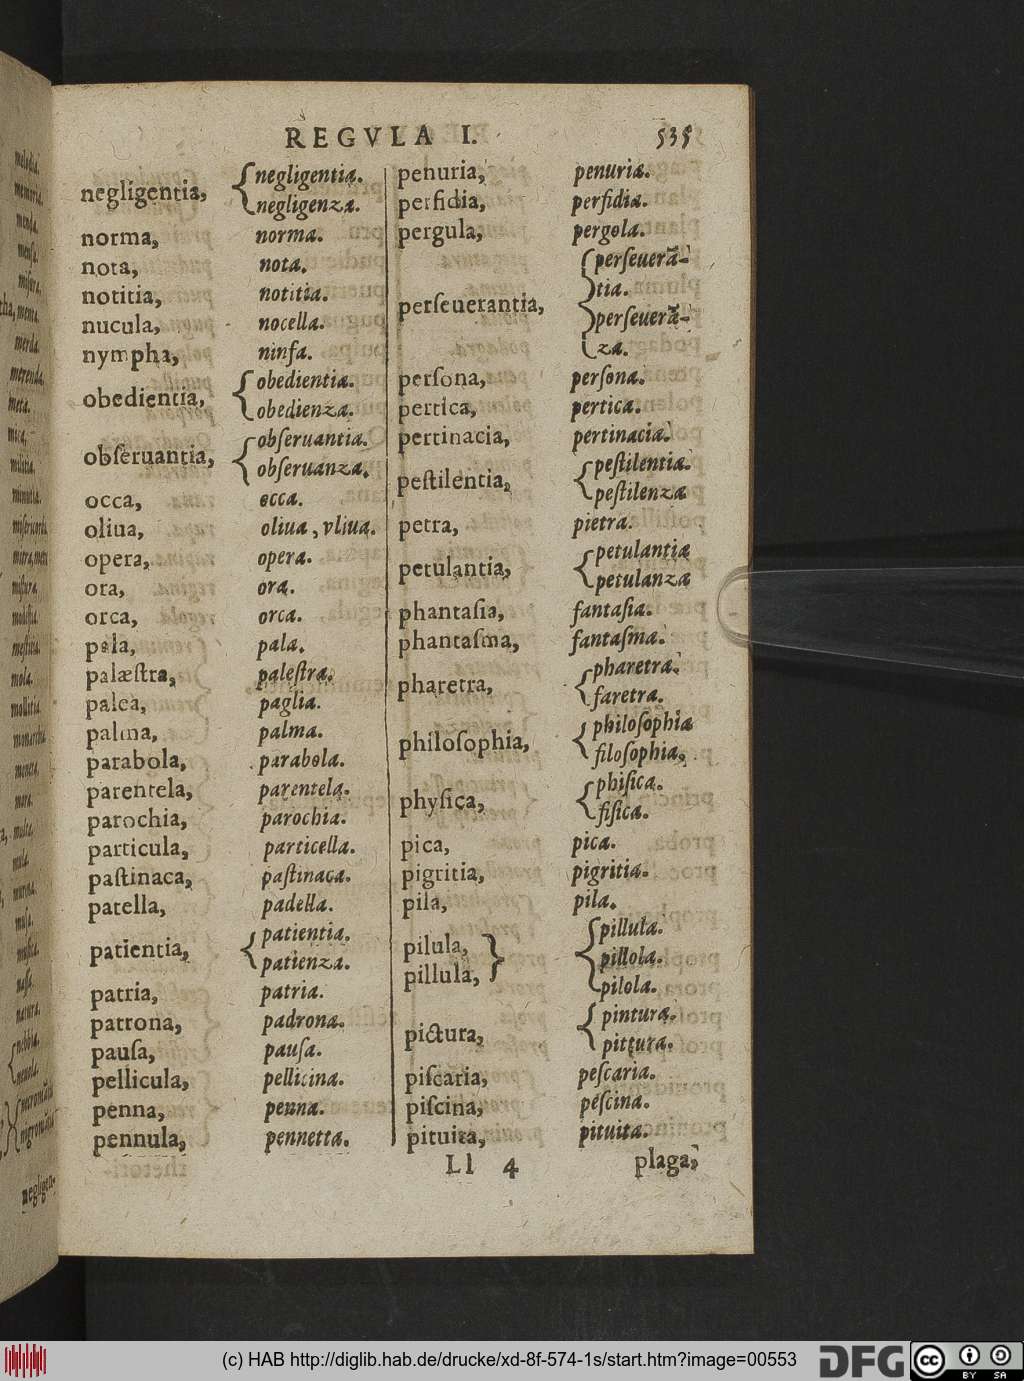 REGVLA I. 535
negligentia, negligentia.
negligenza.
norma, norma.
nota, nota.
notitia, notitia.
nucula, nocella.
nympha, ninfa.
obedientia, obedientia.
obedienza.
obſeruantia, obſeruantia.
obſeruanza.
occa, occa.
oliua, oliua, vliua.
opera, opera.
ora, ora.
orca, orca.
pala, pala.
palæſtra, paleſtra.
palea, paglia.
palma, palma.
parabola, parabola.
parentela, parentela.
parochia, parochia.
particula, particella.
paſtinaca, paſtinaca.
patella, padella.
patientia, patientia.
patienza.
patria, patria.
patrona, padrona.
pauſa, pauſa.
pellicula, pellicina.
penna, penna.
pennula, pennetta.
penuria, penuria.
perfidia, perfidia.
pergula, pergola.
perſeuerantia, perſeuerã-
tia.
perſeuerã-
za.
perſona, perſona.
pertica, pertica.
pertinacia, pertinacia.
peſtilentia, peſtilentia.
peſtilenza
petra, pietra.
petulantia, petulantia
petulanza
phantaſia, fantaſia.
phantaſma, fantaſma.
pharetra, pharetra.
faretra.
philoſophia, philoſophia
filoſophia,
phyſica, phiſica.
fiſica.
pica, pica.
pigritia, pigritia.
pila, pila.
pilula, pillula.
pillula, pillola.
pilola.
pictura, pintura.
pittura.
piſcaria, peſcaria.
piſcina, peſcina.
pituita, pituita.
Ll 4 plaga,
melodia.
memoria.
menda.
menſa.
miſura.
menta.
merda.
merenda.
meta.
mica,
militia.
minutia.
mola.
monarchia
moneta.
mora.
natura.
nebbia.
negligen-
(c) HAB http://diglib.hab.de/drucke/xd-8f-574-1s/start.htm?image=00553
DFG
cc BY SA